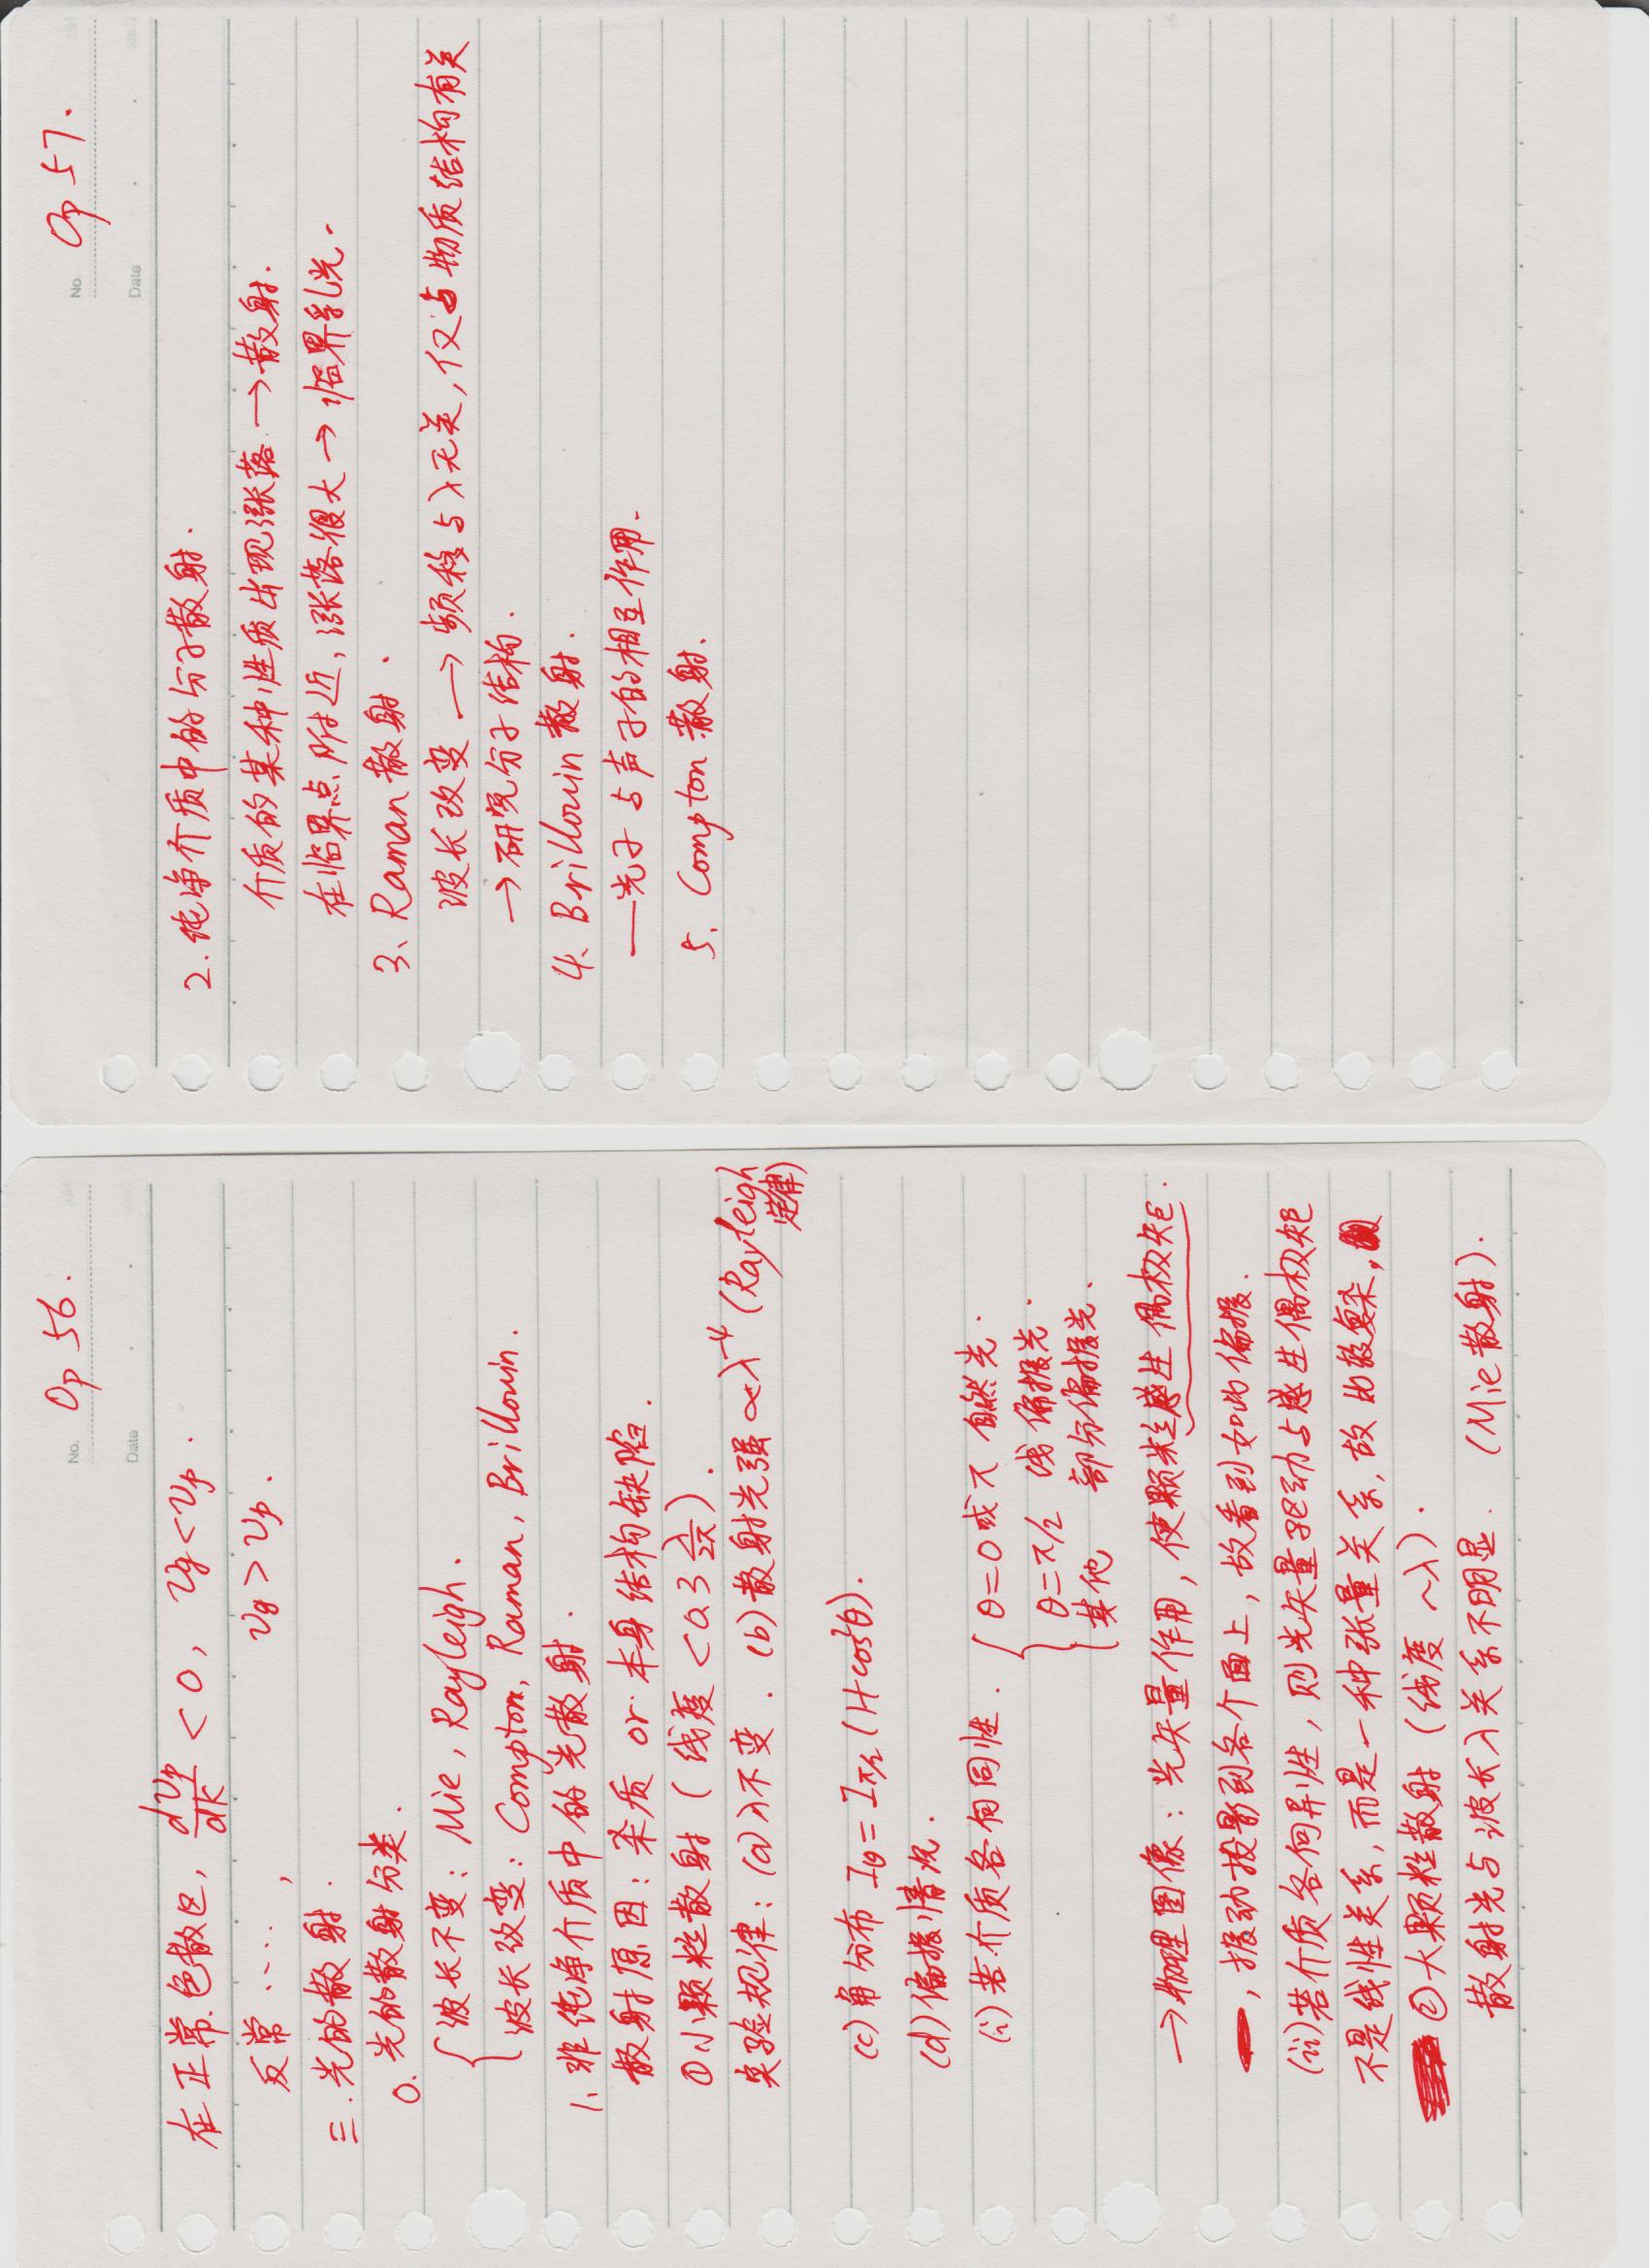 No. Op 56.
Date
在正常色散区, dvp/dk < 0, vg < vp.
反常 ····, vg > vp.
三.光的散射.
0.光的散射分类.
波长不变: Mie, Rayleigh.
波长改变: Compton, Raman, Brillouin.
1、非纯净介质中的光散射.
散射原因: 杂质 or 本身结构缺陷.
①小颗粒散射 (线度 < 0.3 λ/2π).
实验规律: (a) λ不变. (b) 散射光强 ∝ λ⁻⁴ (Rayleigh
定律)
(c) 角分布 Iθ = Iπ/2 (1+cos²θ).
(d) 偏振情况.
(i) 若介质各向同性.
θ=0或π 自然光.
θ=π/2 线偏振光.
其他 部分偏振光.
→物理图像: 光矢量作用, 使颗粒感生偶极矩.
, 振动投影到各个面上, 故看到如此偏振.
(ii) 若介质各向异性, 则光矢量驱动与感生偶极矩
不是线性关系, 而是一种张量关系, 故比较复杂.
②大颗粒散射 (线度 ~λ).
散射光与波长λ关系不明显. (Mie散射).
No. Op 57.
Date
2.纯净介质中的分子散射.
介质的某种性质出现涨落→散射.
在临界点附近, 涨落很大→临界乳光.
3、Raman散射.
波长改变 → 频移与λ无关, 仅与物质结构有关
→研究分子结构.
4、Brillouin散射.
—光子与声子的相互作用.
5、Compton散射.